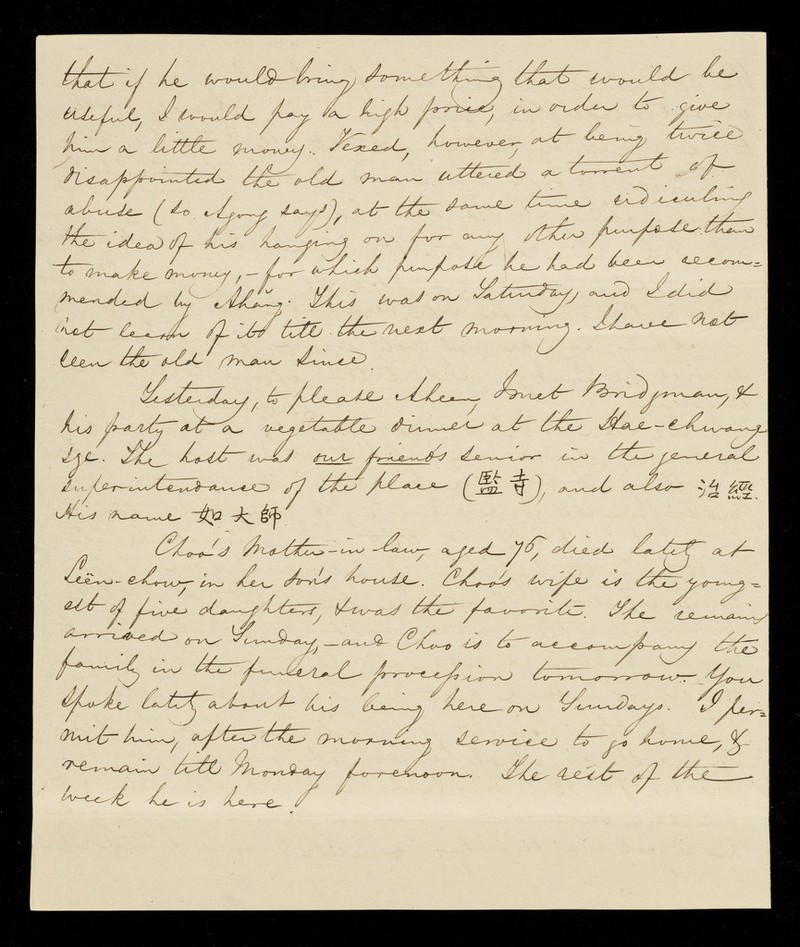 that if he would bring something that would be
useful, I would pay a high price, in order to give
him a little money. Vexed, however, at being twice
disappointed the old man uttered a torrent of
abuse (so Agong says), at the same time ridiculing
the idea of his hanging on for any other purpose than
to make money,-for which purpose he had been recom=
mended by Ahang. This was on Saturday, and I did
not learn of it till the next morning. I have not
seen the old man since.
Yesterday, to please Aheen, I met Bridgman, &
his party at a vegetable dinner at the Hae-chwang
sze. The host was our friend's senior in the general
superintendance of the place (監寺), and also 治經.
His name 如大師
Choo's mother-in-law, aged 75, died lately at
Leën-chow, in her son's house. Choo's wife is the young=
est of five daughters, & was the favorite. The remains
arrived on Sunday,-and Choo is to accompany the
family in the funeral procession tomorrow. You
spoke lately about his being here on Sundays. I per=
mit him, after the morning service to go home, &
remain till Monday forenoon. The rest of the
week he is here.